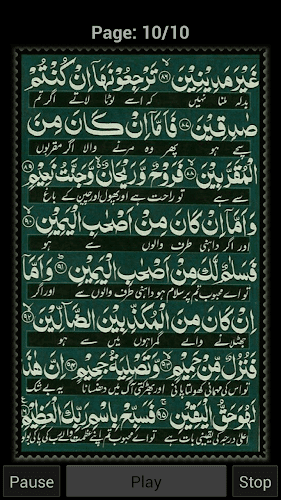 Page: 10/10
غَيْرَ مَدِيْنِيْنَ ۝۸۶ تَرْجِعُوْنَهَاۤ اِنْ كُنْتُمْ
بدلہ ملنا نہیں کہ اسے لوٹا لاتے اگر تم
صٰدِقِيْنَ ۝۸۷ فَاَمَّاۤ اِنْ كَانَ مِنَ
سچے ہو پھر وہ مرنے والا اگر مقربوں
الْمُقَرَّبِيْنَ ۝۸۸ فَرَوْحٌ وَّرَيْحَانٌ وَّجَنَّتُ نَعِيْمٍ ۝۸۹
سے ہے تو راحت ہے اور پھول اور چین کے باغ
وَاَمَّاۤ اِنْ كَانَ مِنْ اَصْحٰبِ الْيَمِيْنِ ۝۹۰
اور اگر داہنی طرف والوں سے ہو
فَسَلٰمٌ لَّكَ مِنْ اَصْحٰبِ الْيَمِيْنِ ۝۹۱ وَاَمَّاۤ
تو اے محبوب تم پر سلام ہو داہنی طرف والوں سے اور اگر
اِنْ كَانَ مِنَ الْمُكَذِّبِيْنَ الضَّآلِّيْنَ ۝۹۲
جھٹلانے والے گمراہوں میں سے ہو
فَنُزُلٌ مِّنْ حَمِيْمٍ ۝۹۳ وَّتَصْلِيَةُ جَحِيْمٍ ۝۹۴ اِنَّ هٰذَا
تو اس کی مہمانی کھولتا پانی اور بھڑکتی آگ میں دھنسانا یہ بے شک
لَهُوَ حَقُّ الْيَقِيْنِ ۝۹۵ فَسَبِّحْ بِاسْمِ رَبِّكَ الْعَظِيْمِ
اعلیٰ درجہ کی یقینی بات ہے تو اے محبوب تم اپنے عظمت والے رب کے نام کی پاکی بولو
Pause Play Stop